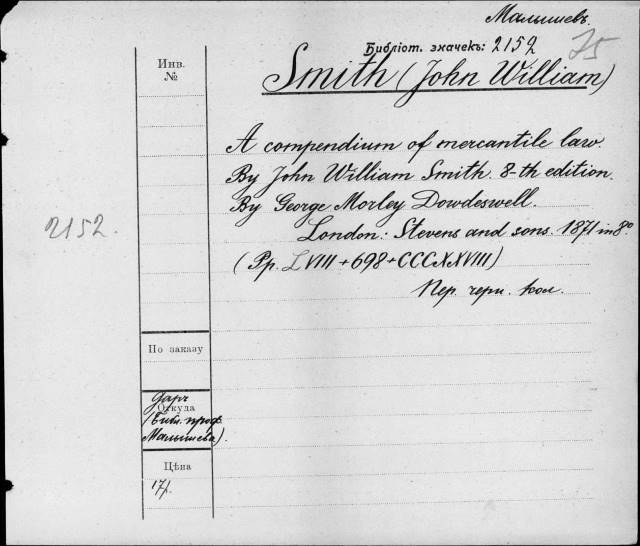 Малышевъ.
Библіот. значекъ: 2152
75
Инв.
№
Smith (John William)
A compendium of mercantile law.
By John William Smith. 8-th edition.
By George Morley Dowdeswell.
2152.
London: Stevens and sons. 1871 in 8º.
(Pp. LVIII+698+CCCXXVIII)
Пер. черн. кол.
По заказу
Даръ
Откуда
(Библ. проф.
Малышева).
Цѣна
17/.